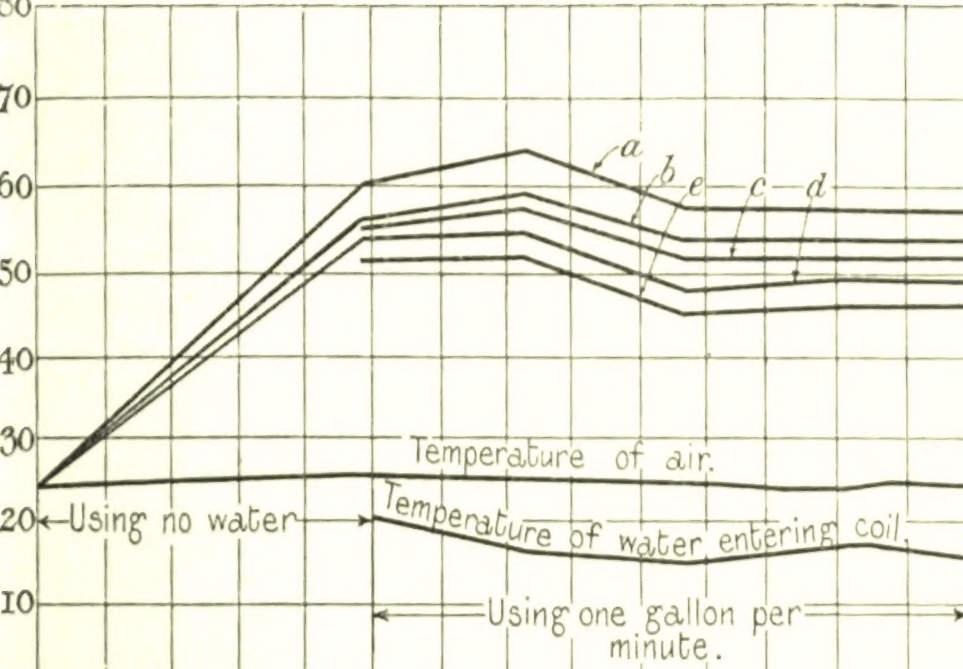 80
70
a
b
60
e
c
d
50
40
30
Temperature of air.
20
Using no water
Temperature of water entering coil.
10
Using one gallon per
minute.